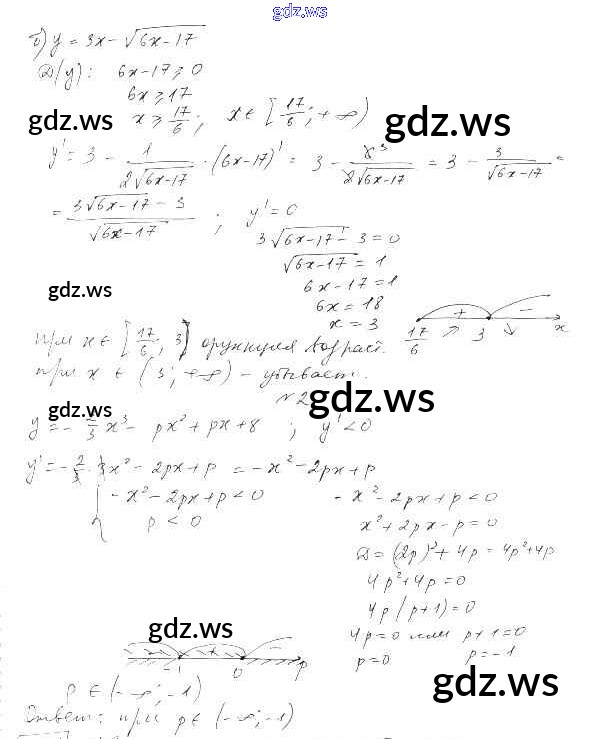 gdz.ws
б) y = 3x - √(6x-17)
D(y): 6x-17 ⩾ 0
6x ⩾ 17
gdz.ws
x ⩾ 17/6 ; x ∈ [17/6; +∞)
gdz.ws
y' = 3 - 1/(2√(6x-17)) · (6x-17)' = 3 - 6 3/(2√(6x-17)) = 3 - 3/√(6x-17) =
= (3√(6x-17) - 3)/√(6x-17) ; y' = 0
3√(6x-17) - 3 = 0
√(6x-17) = 1
gdz.ws
6x-17 = 1
6x = 18
x = 3
+ -
17/6 ↗ 3 ↘ x
При x ∈ [17/6; 3] функция возраст.
при x ∈ (3; +∞) - убывает.
gdz.ws
№2
gdz.ws
y = - /3 x³ - px² + px + 8 ; y' < 0
y' = - /3 · 3x² - 2px + p = -x² - 2px + p
{ -x² - 2px + p < 0
p < 0
-x² - 2px + p < 0
x² + 2px - p = 0
D = (2p)² + 4p = 4p² + 4p
4p² + 4p = 0
4p(p+1) = 0
4p = 0 или p+1 = 0
p = 0 p = -1
gdz.ws
-
-1 0 p
p ∈ (-∞; -1)
gdz.ws
Ответ: при p ∈ (-∞; -1)